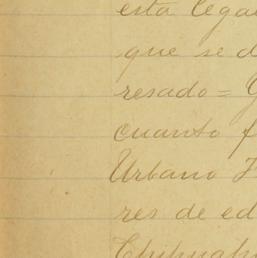 esta lega
que se d
resado = G
cuanto f
Urbano
res de ed
Chihuahu